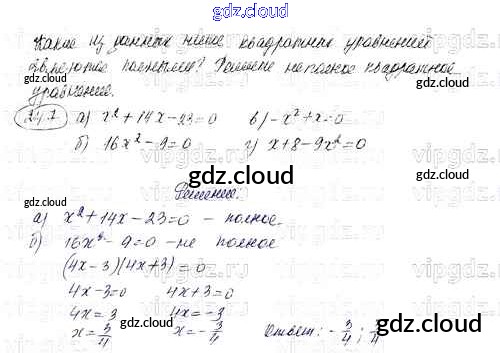 gdz.cloud
Какие из данных ниже квадратных уравнений
являются полными? Решите неполное квадратное
уравнение.
24.7 а) x² + 14x - 23 = 0 в) -x² + x = 0
б) 16x² - 9 = 0 г) x + 8 - 9x² = 0
gdz.cloud
gdz.cloud
gdz.cloud
Решение:
gdz.cloud
а) x² + 14x - 23 = 0 - полное.
б) 16x² - 9 = 0 - не полное
(4x - 3)(4x + 3) = 0
4x - 3 = 0 4x + 3 = 0
gdz.cloud
4x = 3 4x = -3
x = 3/4 x = -3/4 Ответ: -3/4; 3/4
gdz.cloud